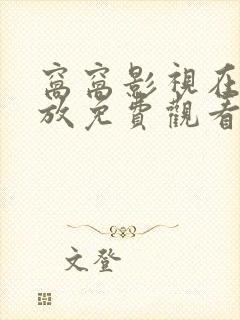 窩窩影視在
放免費觀看
文登